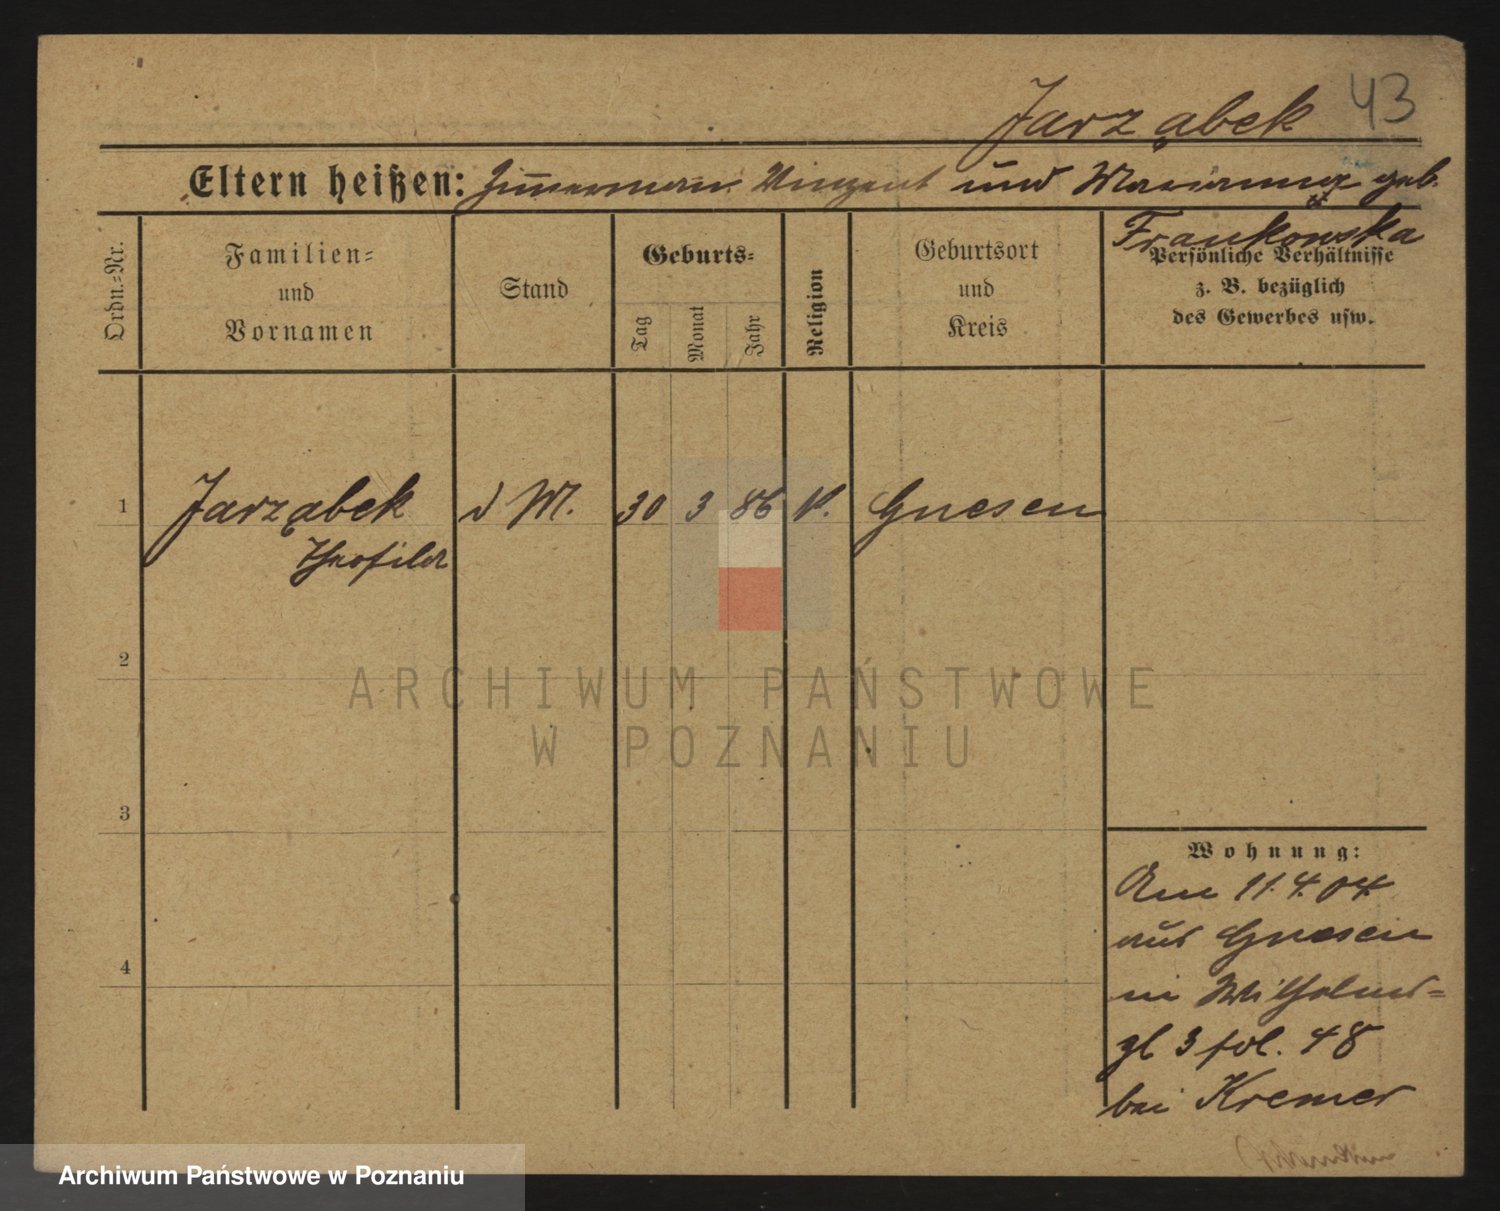 43
Jarząbek
Eltern heißen: Zimmerman Vinzent und Marianna geb.
Frankowska
Ordn.=Nr.
Familien=
und
Vornamen
Stand
Geburts=
Tag
Monat
Jahr
Religion
Geburtsort
und
Kreis
Persönliche Verhältnisse
z. B. bezüglich
des Gewerbes usw.
1 Jarząbek d M. 30 3 86 k. Gnesen
Theofila
2
3
4
Wohnung:
Am 11.4.04
aus Gnesen
in Wilhelms=
pl 3 fol. 48
bei Kremer
ARCHIWUM PAŃSTWOWE
W POZNANIU
Archiwum Państwowe w Poznaniu